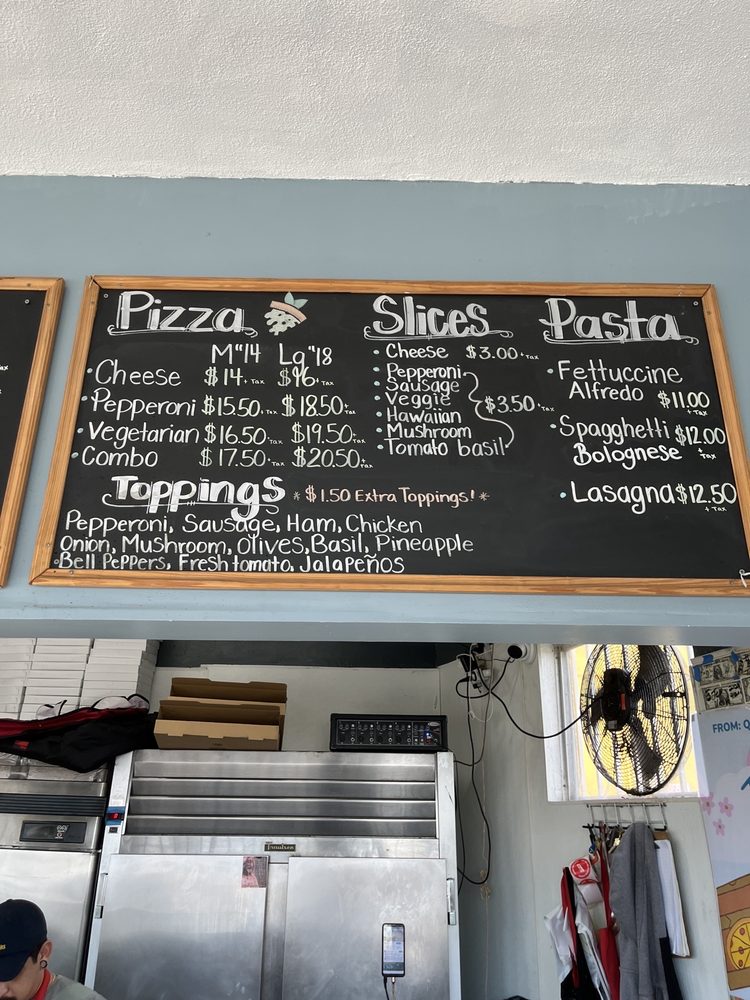 Pizza
M"14 Lg"18
• Cheese $14 + Tax $16 + Tax
• Pepperoni $15.50 + Tax $18.50 + Tax
• Vegetarian $16.50 + Tax $19.50 + Tax
• Combo $17.50 + Tax $20.50 + Tax
Toppings * $1.50 Extra Toppings! *
Pepperoni, Sausage, Ham, Chicken
Onion, Mushroom, Olives, Basil, Pineapple
Bell Peppers, Fresh tomato, Jalapeños
Slices
• Cheese $3.00 + Tax
• Pepperoni
• Sausage
• Veggie $3.50 + Tax
• Hawaiian
• Mushroom
• Tomato basil
Pasta
• Fettuccine
Alfredo $11.00
+ Tax
• Spagghetti $12.00
Bolognese + Tax
• Lasagna $12.50
+ Tax
FROM: